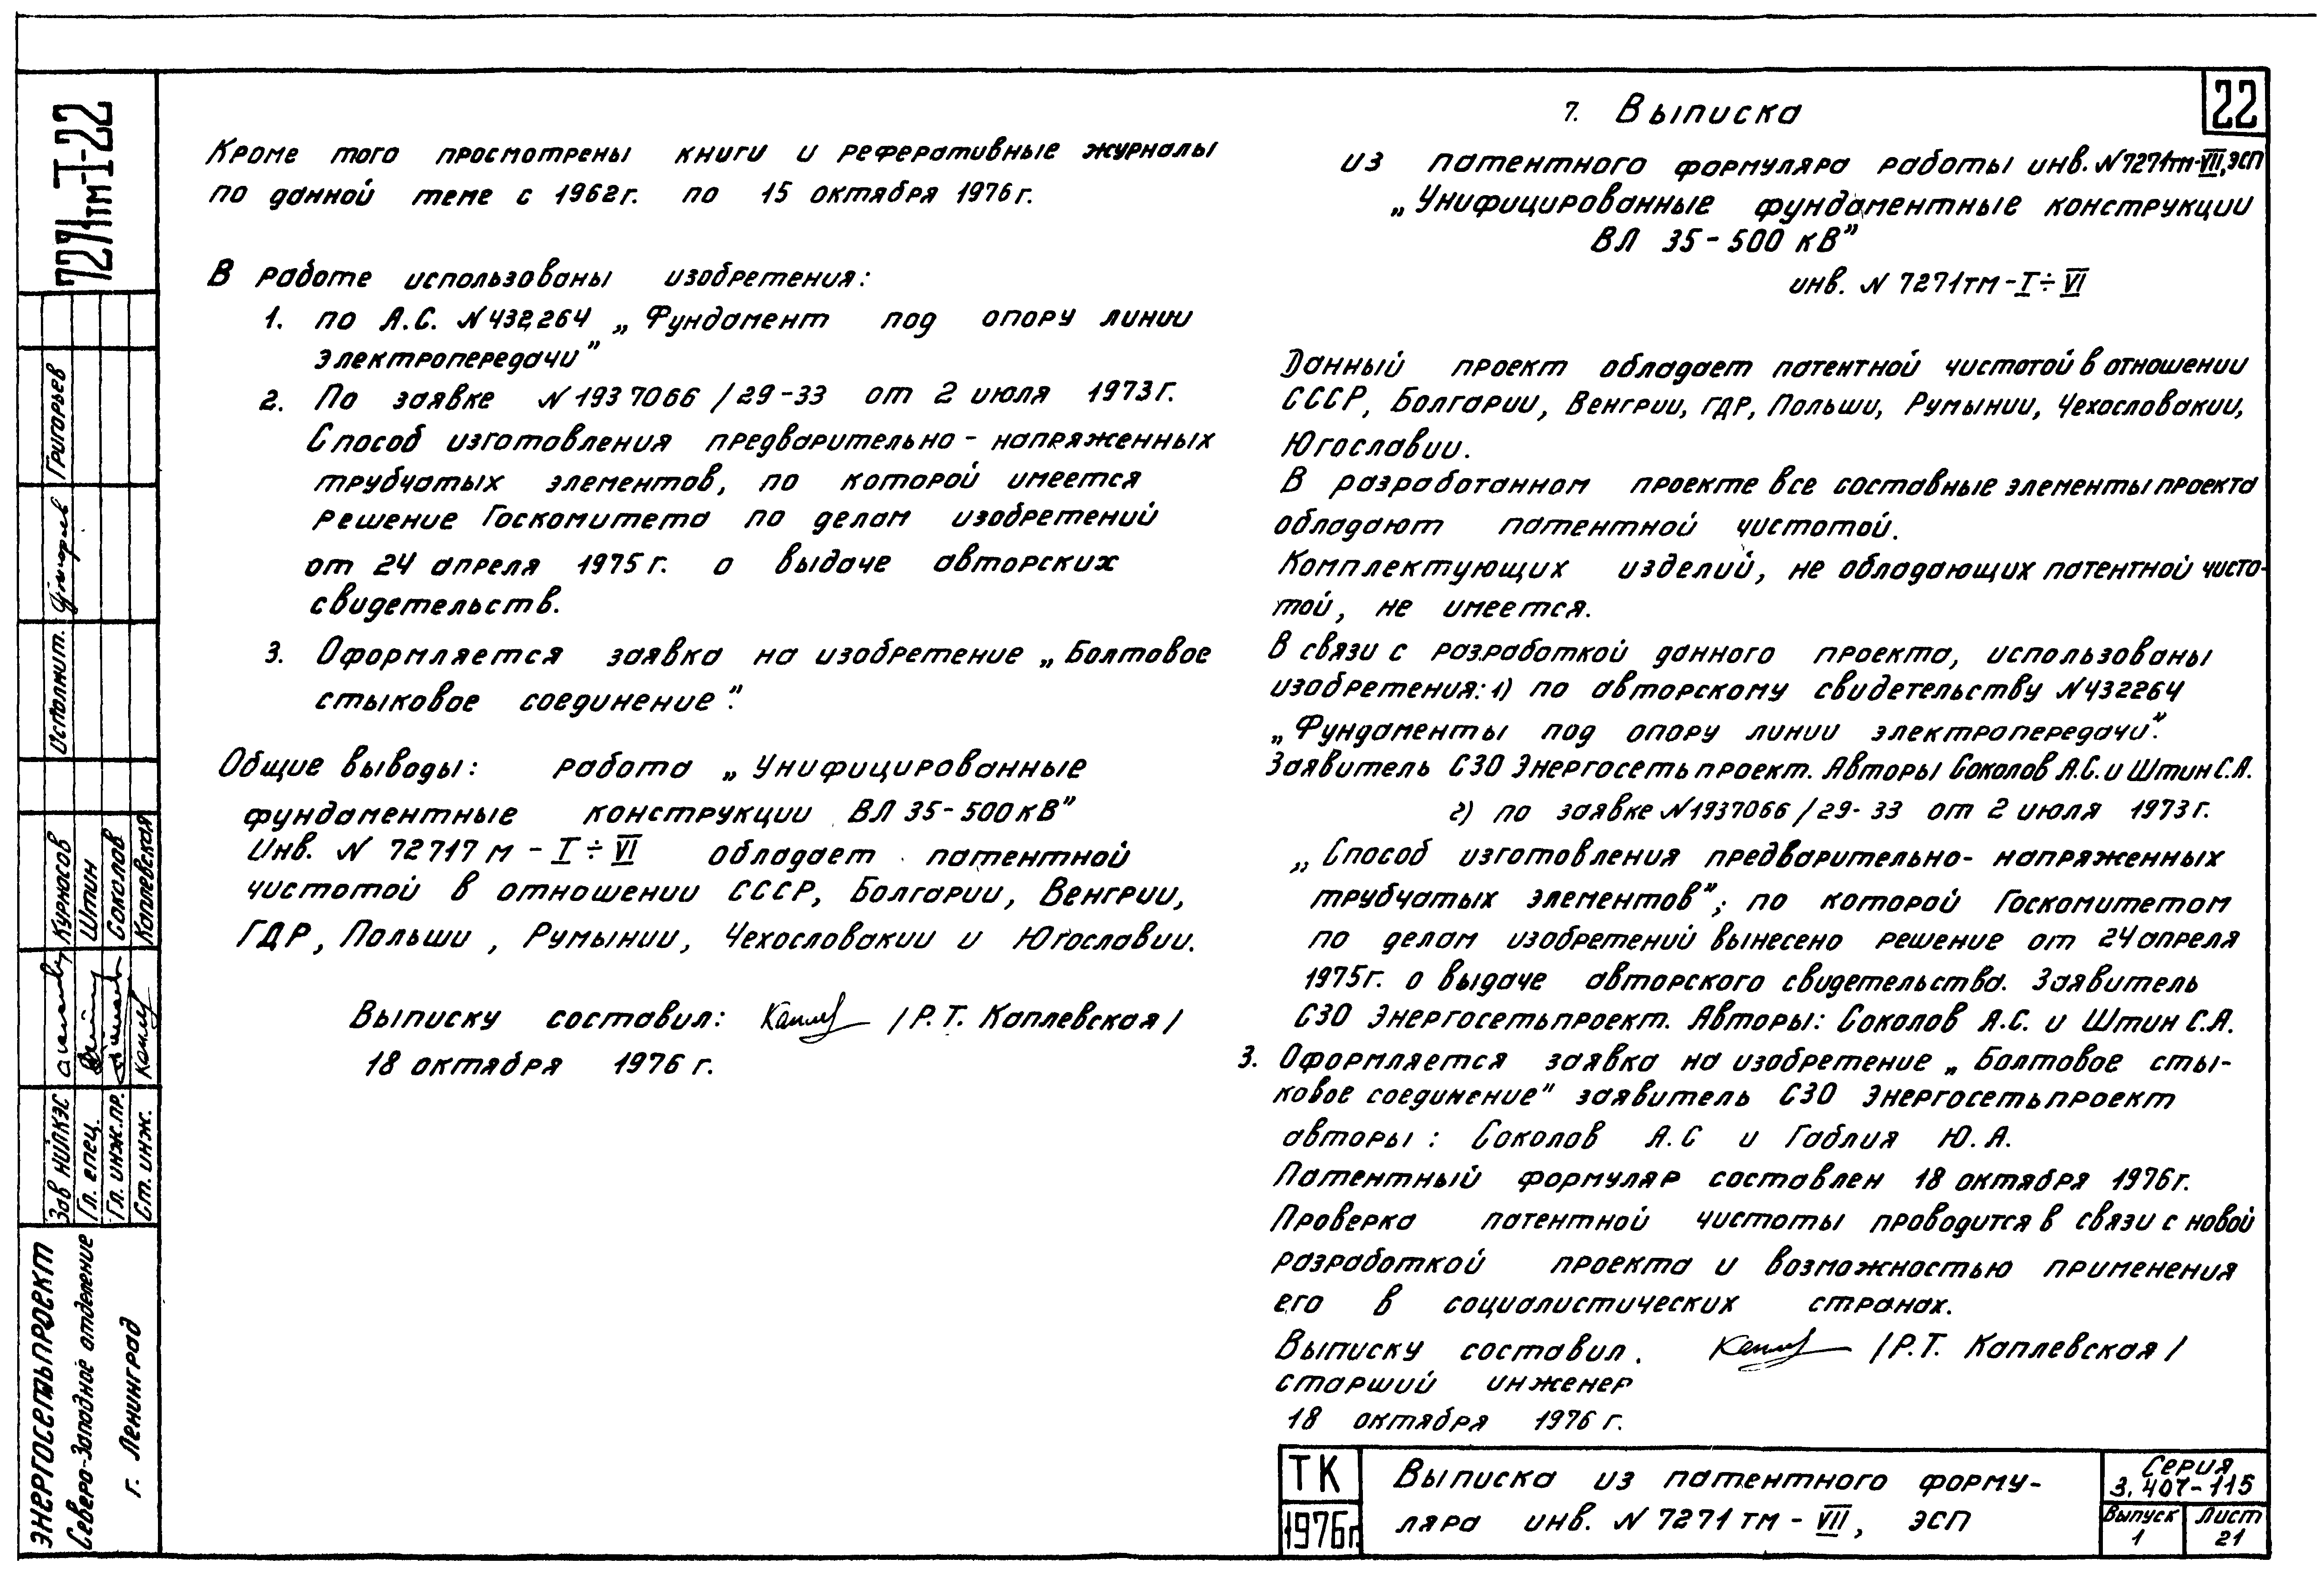 Кроме того просмотрены книги и реферативные журналы
по данной теме с 1962г. по 15 октября 1976г.
В работе использованы изобретения:
1. по А.С. N432264 „Фундамент под опору линии
электропередачи”
2. По заявке N1937066/29-33 от 2 июля 1973г.
Способ изготовления предварительно-напряженных
трубчатых элементов, по которой имеется
решение Госкомитета по делам изобретений
от 24 апреля 1975г. о выдаче авторских
свидетельств.
3. Оформляется заявка на изобретение „Болтовое
стыковое соединение”.
Общие выводы: работа „Унифицированные
фундаментные конструкции ВЛ 35-500кВ”
Инв. N 72717м - I÷VI обладает патентной
чистотой в отношении СССР, Болгарии, Венгрии,
ГДР, Польши, Румынии, Чехословакии и Югославии.
Выписку составил: /Р.Т. Каплевская/
18 октября 1976 г.
22
7. Выписка
из патентного формуляра работы инв. N7271тм-VII, ЭСП
„Унифицированные фундаментные конструкции
ВЛ 35-500 кВ”
инв. N 7271тм-I÷VI
Данный проект обладает патентной чистотой в отношении
СССР, Болгарии, Венгрии, ГДР, Польши, Румынии, Чехословакии,
Югославии.
В разработанном проекте все составные элементы проекта
обладают патентной чистотой.
Комплектующих изделий, не обладающих патентной чисто-
той, не имеется.
В связи с разработкой данного проекта, использованы
изобретения: 1) по авторскому свидетельству N432264
„Фундаменты под опору линии электропередачи”.
Заявитель СЗО Энергосетьпроект. Авторы Соколов А.С. и Штин С.А.
2) по заявке N1937066/29-33 от 2 июля 1973г.
„Способ изготовления предварительно-напряженных
трубчатых элементов”; по которой Госкомитетом
по делам изобретений вынесено решение от 24 апреля
1975г. о выдаче авторского свидетельства. Заявитель
СЗО Энергосетьпроект. Авторы: Соколов А.С. и Штин С.А.
3. Оформляется заявка на изобретение „Болтовое сты-
ковое соединение” заявитель СЗО Энергосетьпроект
авторы: Соколов А.С и Габлия Ю.А.
Патентный формуляр составлен 18 октября 1976г.
Проверка патентной чистоты проводится в связи с новой
разработкой проекта и возможностью применения
его в социалистических странах.
Выписку составил. /Р.Т. Каплевская/
старший инженер
18 октября 1976 г.
ТК
1976г.
Выписка из патентного форму-
ляра инв. N 7271 тм - VII, ЭСП
Серия
3.407-115
Выпуск
1
Лист
21
7271тм-I-22
Исполнит. Григорьев
Зав НИЛКЭС Курносов
Гл. спец. Штин
Гл. инж.пр. Соколов
Ст. инж. Каплевская
ЭНЕРГОСЕТЬПРОЕКТ
Северо-Западное отделение
г. Ленинград